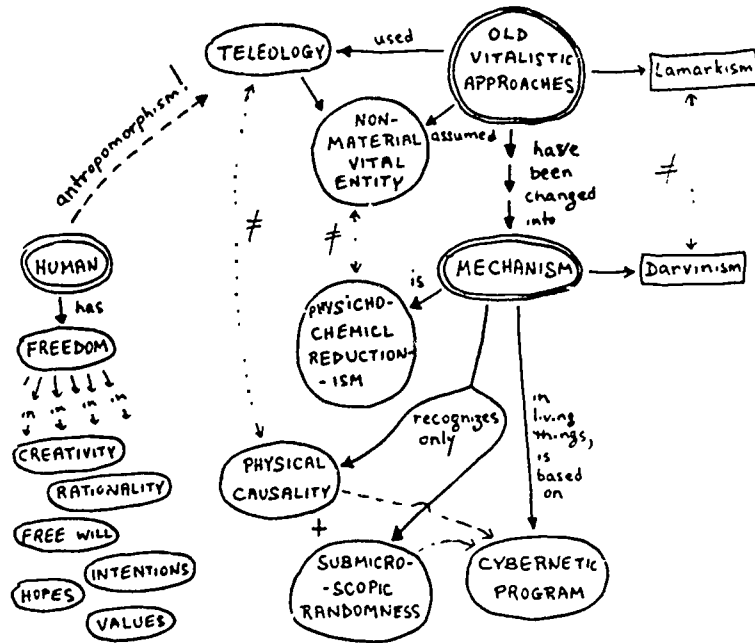 OLD
VITALISTIC
APPROACHES
used
TELEOLOGY
Lamarkism
antropomorphism!
NON-
MATERIAL
VITAL
ENTITY
assumed
have
been
changed
into
≠
≠
≠
HUMAN
MECHANISM
Darvinism
is
has
PHYSICHO-
CHEMICL
REDUCTION-
-ISM
FREEDOM
in in in in
CREATIVITY
RATIONALITY
FREE WILL
INTENTIONS
HOPES
VALUES
recognizes
only
in
living
things,
is
based
on
PHYSICAL
CAUSALITY
+
SUBMICRO-
-SCOPIC
RANDOMNESS
CYBERNETIC
PROGRAM